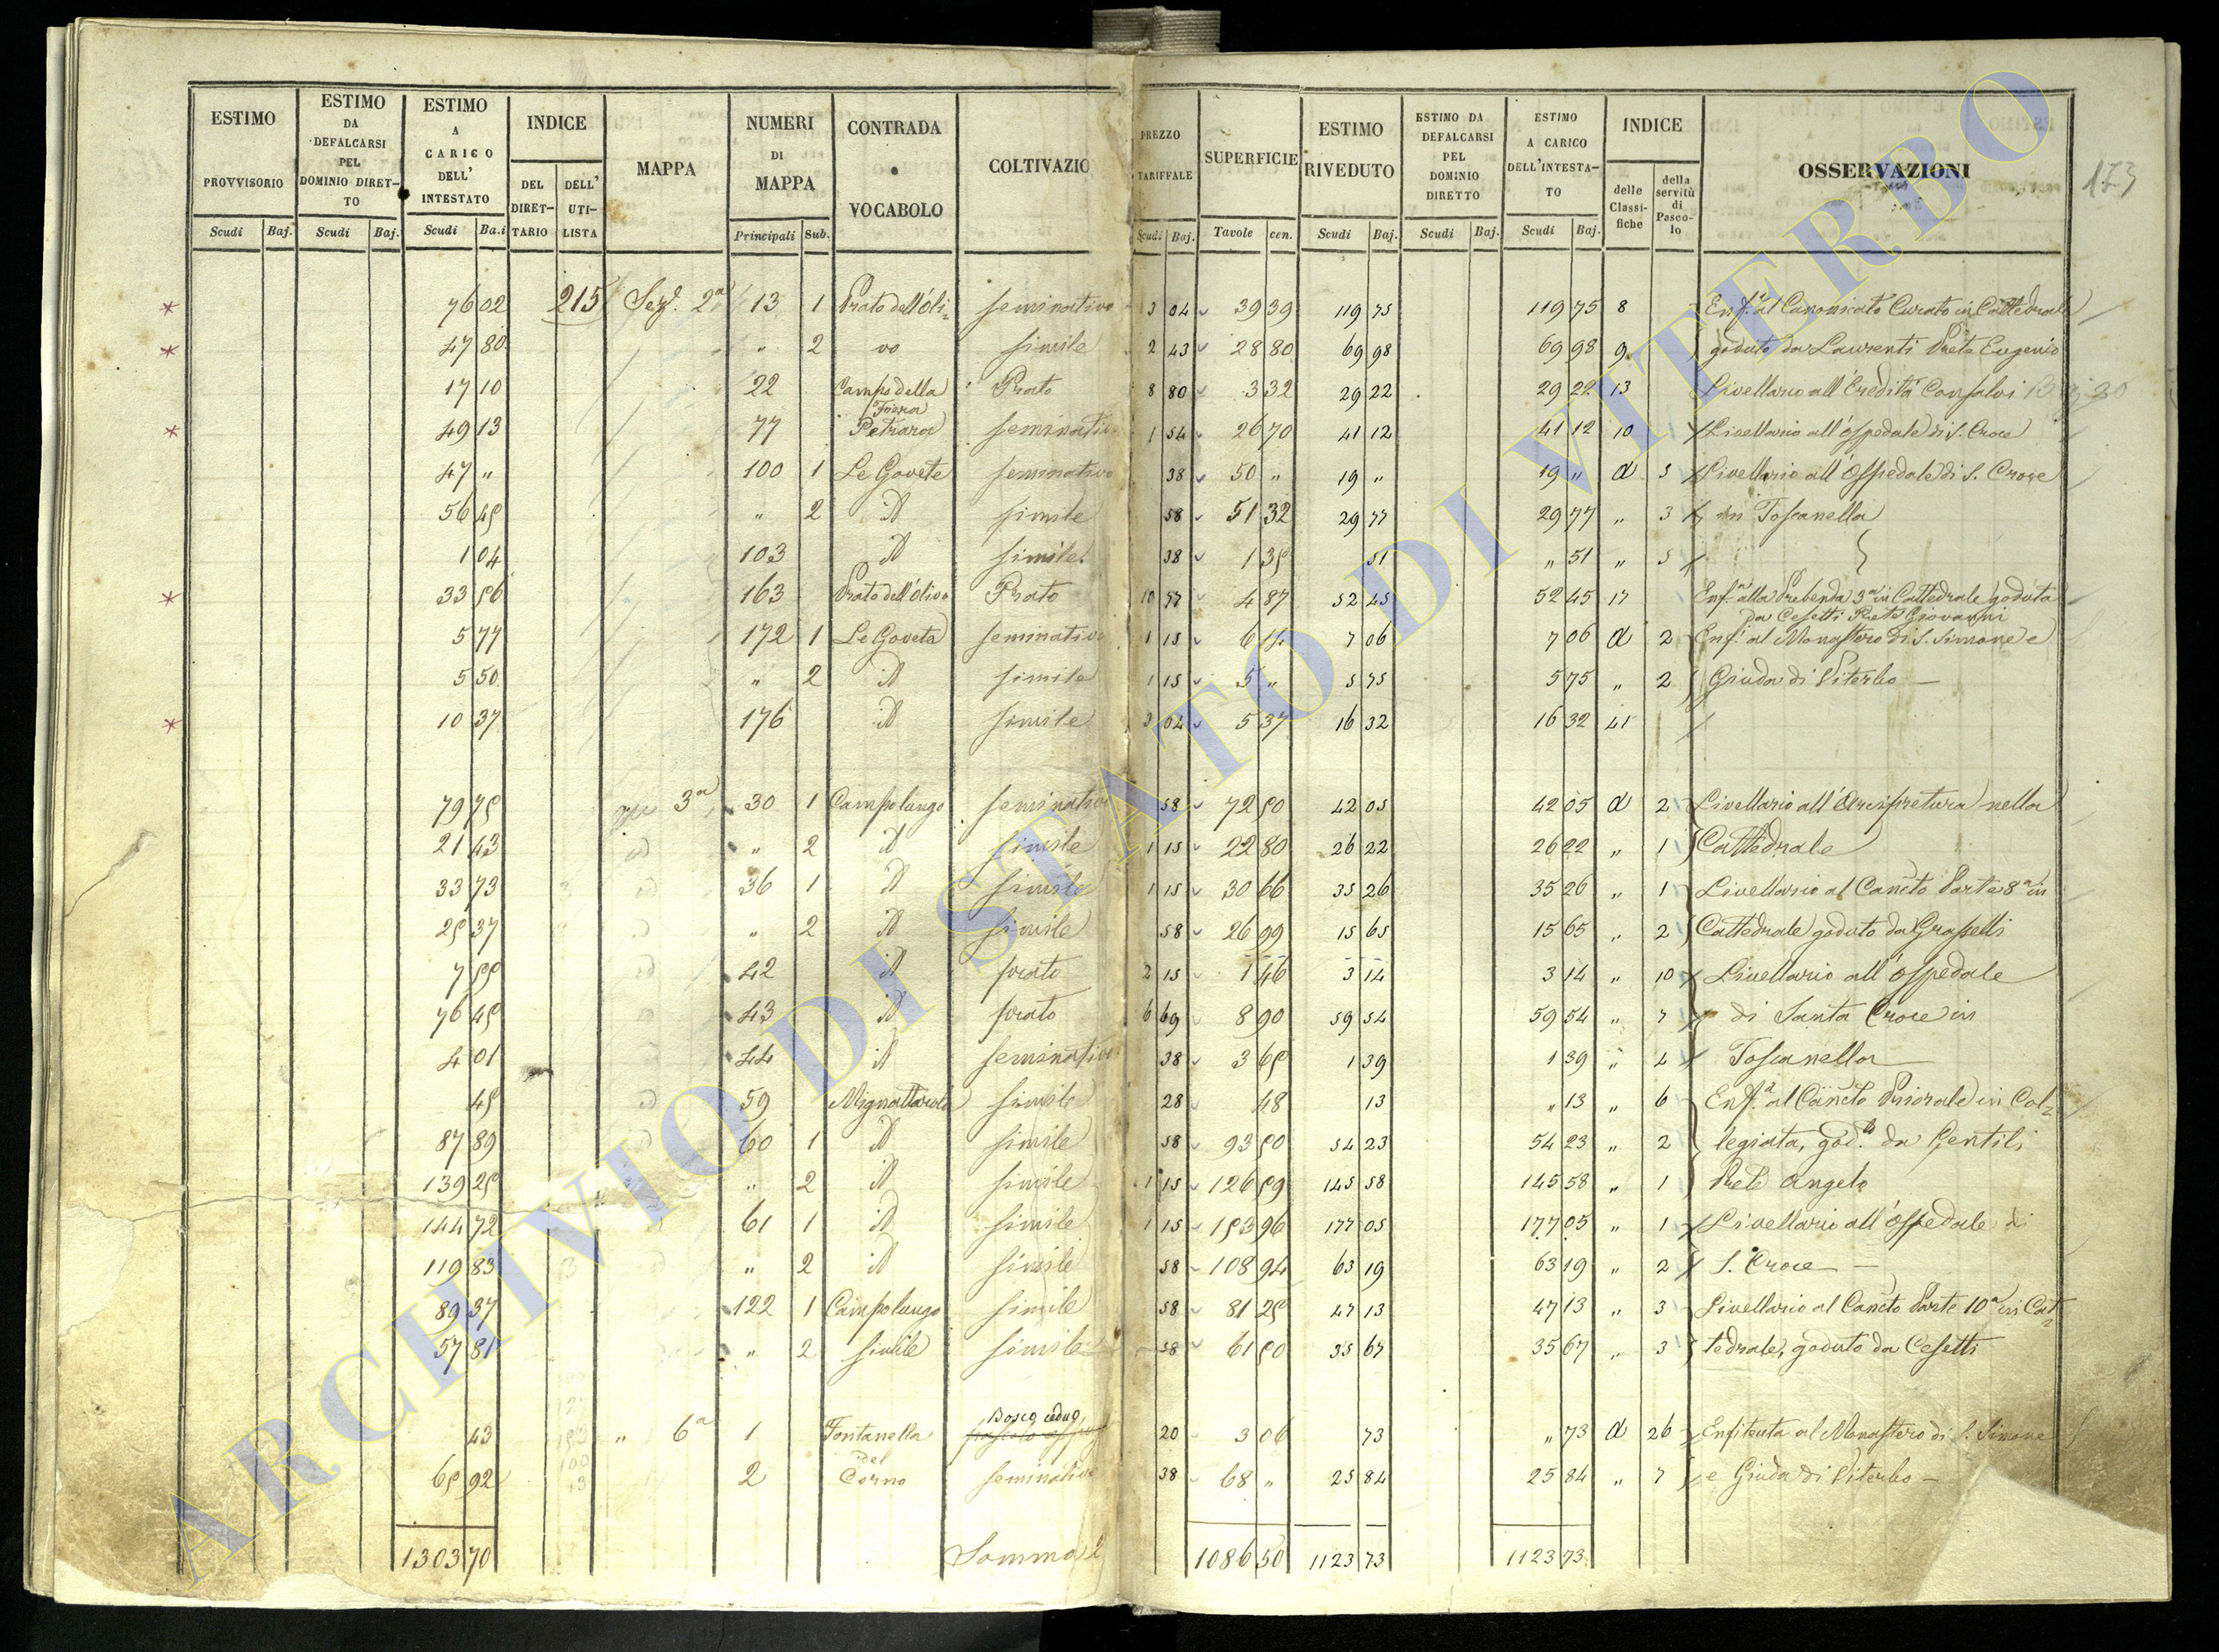 ESTIMO PROVVISORIO Scudi Baj. ESTIMO DA DEFALCARSI PEL DOMINIO DIRETTO Scudi Baj. ESTIMO A CARICO DELL' INTESTATO Scudi Ba.i INDICE DEL DIRETTARIO DELL' UTILISTA MAPPA NUMERI DI MAPPA Principali Sub. CONTRADA o VOCABOLO COLTIVAZIO
PREZZO TARIFFALE Scudi Baj. SUPERFICIE Tavole cen. ESTIMO RIVEDUTO Scudi Baj. ESTIMO DA DEFALCARSI PEL DOMINIO DIRETTO Scudi Baj. ESTIMO A CARICO DELL'INTESTATO Scudi Baj. INDICE delle Classifiche della servitù di Pascolo OSSERVAZIONI 173
* 76 02 215 Sez. 2a 13 1 Prato dell'Oli= seminativo 3 04 39 39 119 75 119 75 8 Enf.a al Canonicato Curato in Cattedrale
* 47 80 " 2 simile 2 43 28 80 69 98 69 98 9 goduto da Laurenti Prete Eugenio
17 10 22 Campo della Prato 8 80 3 32 29 22 29 22 13 Livellario all'Eredità Consalvi
* 49 13 77 Petrara seminativo 1 54 26 70 41 12 41 12 10 Livellario all'ospedale di S. Croce
47 " 100 1 Le Govete seminativo 38 50 " 19 " 19 " d 3 Livellario all'Ospedale di S. Croce
56 45 " 2 id simile 58 51 32 29 77 29 77 " 3 in Toscanella
1 04 103 id simile 38 1 35 51 " 51 " 3
* 33 56 163 Prato dell'Olivo Prato 10 77 4 87 52 45 52 45 17 Enf.a alla Prebenda 3a in Cattedrale goduta
da Cesetti Prete Giovanni
5 77 172 1 Le Goveta seminativo 1 15 6 14 7 06 7 06 d 2 Enf. al Monastero di S. Simone e
5 50 " 2 id simile 1 15 5 " 5 75 5 75 " 2 Giuda di Viterbo —
* 10 37 176 id simile 3 04 5 37 16 32 16 32
79 75 3a 30 1 Campo lungo seminativo 58 72 50 42 05 42 05 d 2 Livellario all'Arcipretura nella
21 43 " 2 id simile 1 15 22 80 26 22 26 22 " 1 Cattedrale
33 73 36 1 id simile 1 15 30 66 35 26 35 26 " 1 Livellario al Cancto Parte 8a in
25 37 " 2 id simile 58 26 99 15 65 15 65 " 2 Cattedrale goduto da Grasselli
7 55 42 id prato 2 15 1 46 3 14 3 14 " 10 Livellario all'ospedale
76 45 43 id prato 6 69 8 90 59 54 59 54 " 7 di Santa Croce in
4 01 44 id seminativo 38 3 65 1 39 1 39 " 4 Toscanella
45 59 Mignattarola simile 28 48 13 " 13 " 6 Enf.a al Cancto Priorale in Col=
87 89 60 1 id simile 58 93 50 54 23 54 23 " 2 legiata, god.to da Gentili
139 25 " 2 id simile 1 15 126 59 145 58 145 58 " 1 Prete Angelo
144 72 61 1 id simile 1 15 153 96 177 05 177 05 " 1 Livellario all'ospedale di
119 83 " 2 id simile 58 108 94 63 19 63 19 " 2 S. Croce —
89 37 122 1 Campo lungo simile 58 81 25 47 13 47 13 " 3 Livellario al Cancto Parte 10a in Cat=
57 81 " 2 simile simile 58 61 50 35 67 35 67 " 3 tedrale, goduto da Cesetti
43 " 6a 1 Fontanella Bosco ceduo 20 3 06 73 " 73 d 26 Enfiteuta al Monastero di S. Simone
65 92 2 del Corno seminativo 38 68 " 25 84 25 84 " 7 e Giuda di Viterbo —
1303 70 Somma 1086 50 1123 73 1123 73
ARCHIVIO DI STATO DI VITERBO